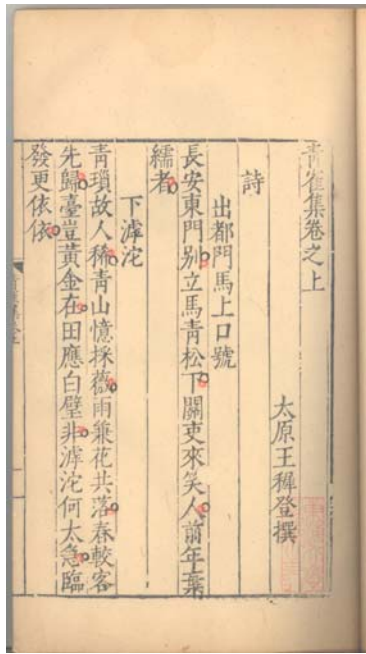 青雀集卷之上
太原王穉登撰
詩
出都門馬上口號
長安東門別立馬青松下關吏來笑人前年棄
繻者
下滹沱
青瑣故人稀青山憶採薇雨兼花共落春較客
先歸臺豈黃金在田應白璧非滹沱何太急臨
發更依依